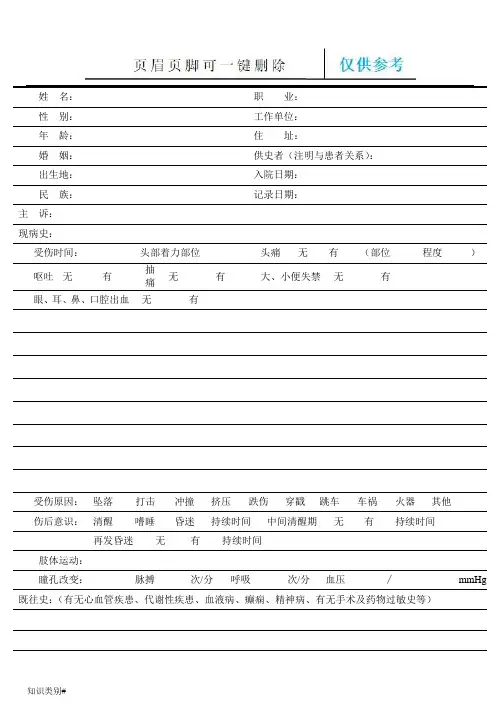 页眉页脚可一键删除 仅供参考
姓 名： 职 业：
性 别： 工作单位：
年 龄： 住 址：
婚 姻： 供史者（注明与患者关系）：
出生地： 入院日期：
民 族： 记录日期：
主 诉：
现病史：
受伤时间： 头部着力部位 头痛 无 有 （部位 程度 ）
呕吐 无 有 抽痛 无 有 大、小便失禁 无 有
眼、耳、鼻、口腔出血 无 有
受伤原因： 坠落 打击 冲撞 挤压 跌伤 穿戳 跳车 车祸 火器 其他
伤后意识： 清醒 嗜睡 昏迷 持续时间 中间清醒期 无 有 持续时间
再发昏迷 无 有 持续时间
肢体运动：
瞳孔改变： 脉搏 次/分 呼吸 次/分 血压 / mmHg
既往史：（有无心血管疾患、代谢性疾患、血液病、癫痫、精神病、有无手术及药物过敏史等）
知识类别#